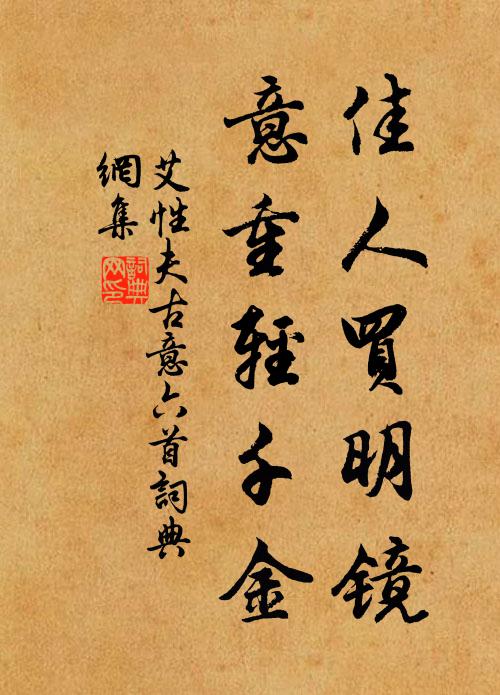 佳人買明镜
意重輕千金
艾性夫古意六首詞典
網集
詞典
网印